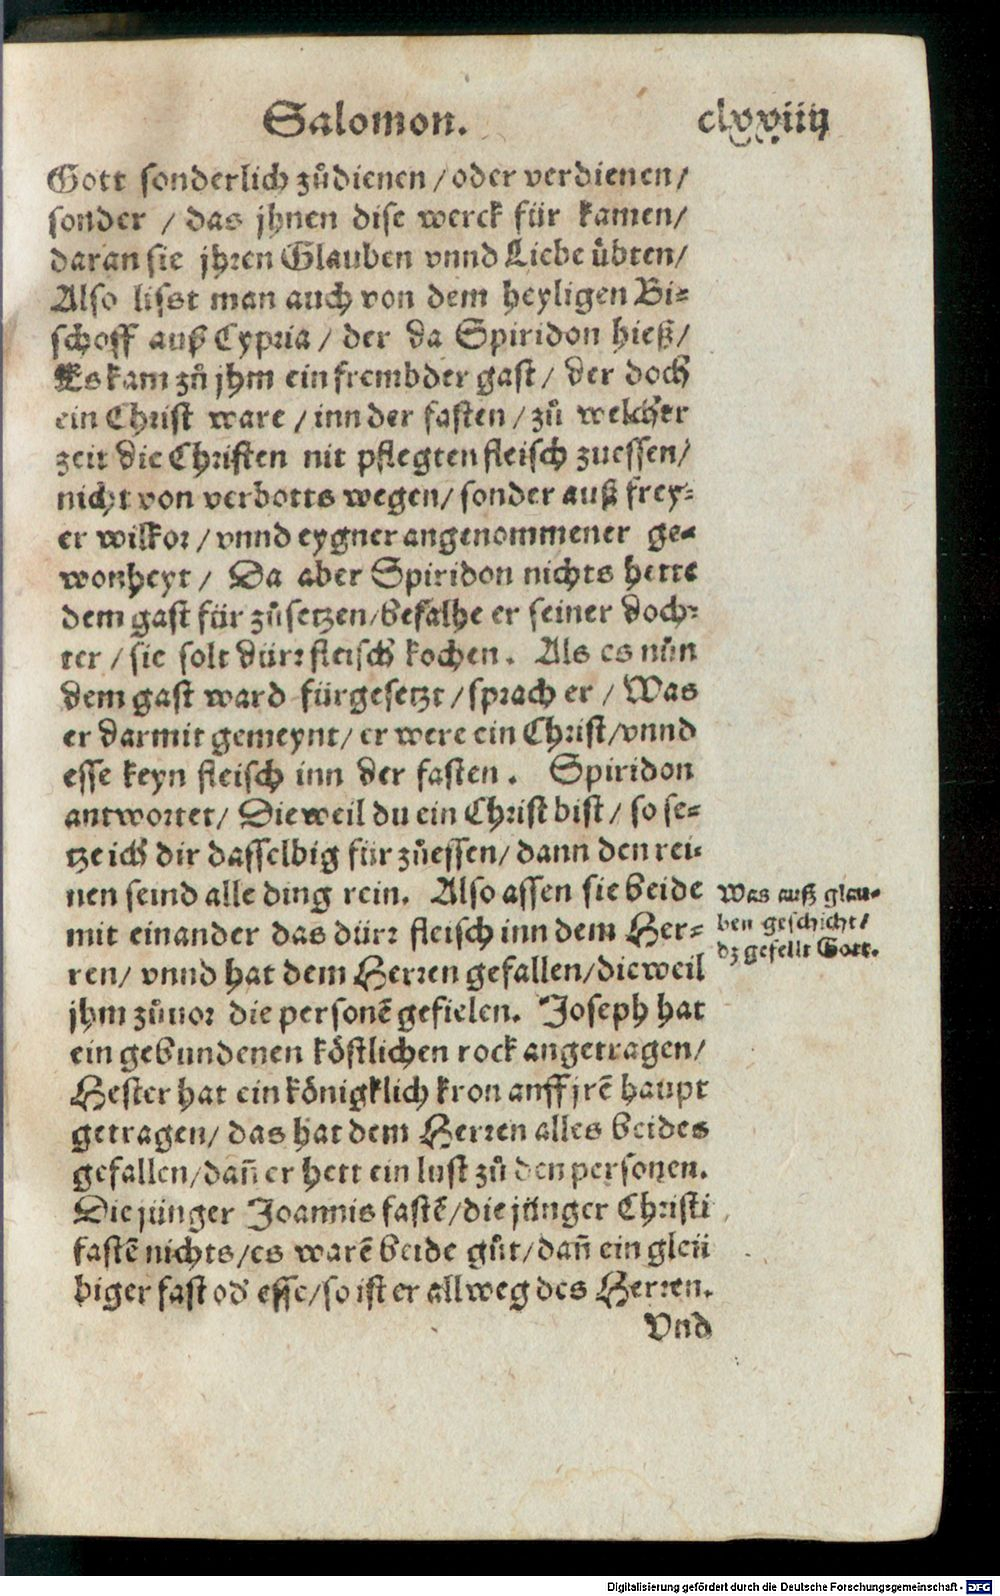 Salomon. clxxiiij
Gott sonderlich zůdienen / oder verdienen /
sonder / das jhnen dise werck für kamen /
daran sie jhren Glauben vnnd Liebe übten /
Also lisst man auch von dem heyligen Bi⸗
schoff auß Cypria / der da Spiridon hieß /
Es kam zů jhm ein frembder gast / der doch
ein Christ ware / inn der fasten / zů welcher
zeit die Christen nit pflegten fleisch zuessen /
nicht von verbotts wegen / sonder auß frey⸗
er wilkor / vnnd eygner angenommener ge⸗
wonheyt / Da aber Spiridon nichts hette
dem gast für zůsetzen / befalhe er seiner doch⸗
ter / sie solt dürr fleisch kochen. Als es nůn
dem gast ward fürgesetzt / sprach er / Was
er darmit gemeynt / er were ein Christ / vnnd
esse keyn fleisch inn der fasten. Spiridon
antwortet / Die weil du ein Christ bist / so se⸗
tze ich dir dasselbig für zůessen / dann den rei⸗
nen seind alle ding rein. Also assen sie beide
mit einander das dürr fleisch inn dem Her⸗
ren / vnnd hat dem Herren gefallen / die weil
jhm zůuor die personē gefielen. Joseph hat
ein gebundenen köstlichen rock angetragen /
Hester hat ein königklich kron auff jrē haupt
getragen / das hat dem Herren alles beides
gefallen / dañ er hett ein lust zů den personen.
Die jünger Joannis fastē / die jünger Christi
fastē nichts / es warē beide gůt / dañ ein gleü
biger fast od' esse / so ist er allweg des Herren.
Vnd
Was auß glau⸗
ben geschicht /
dz gefellt Gott.
Digitalisierung gefördert durch die Deutsche Forschungsgemeinschaft - DFG